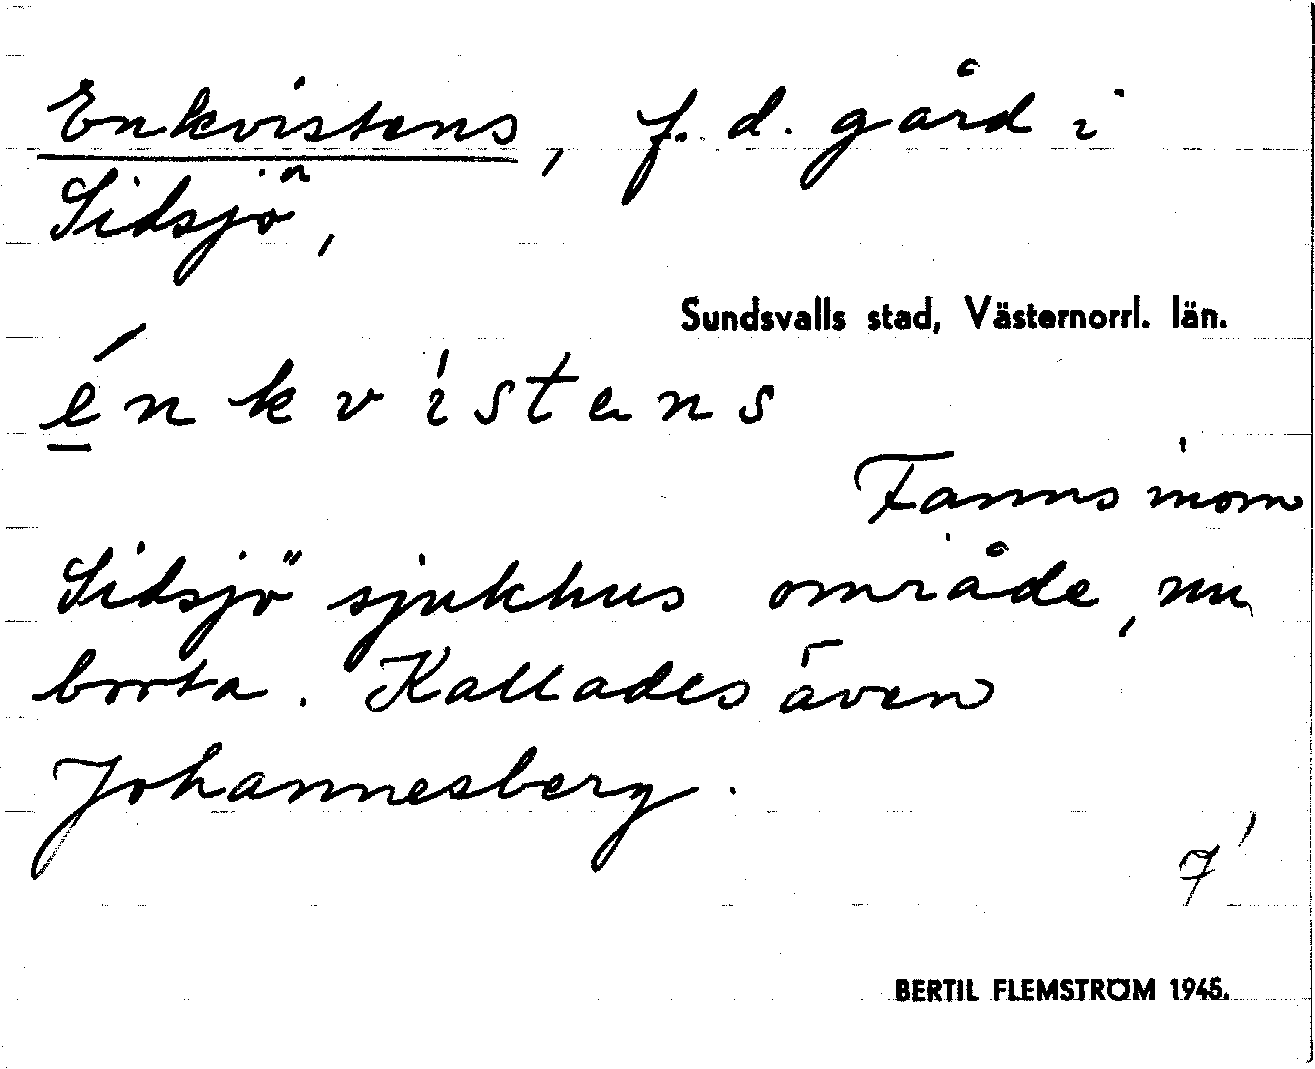 Enkvistens, f. d. gård i
Sidsjö,
Sundsvalls stad, Västernorrl. län.
é̱nkvistens
Fanns inom
Sidsjö sjukhus område, nu
borta. Kallades även
Johannesberg.
7'
BERTIL FLEMSTRÖM 1945.